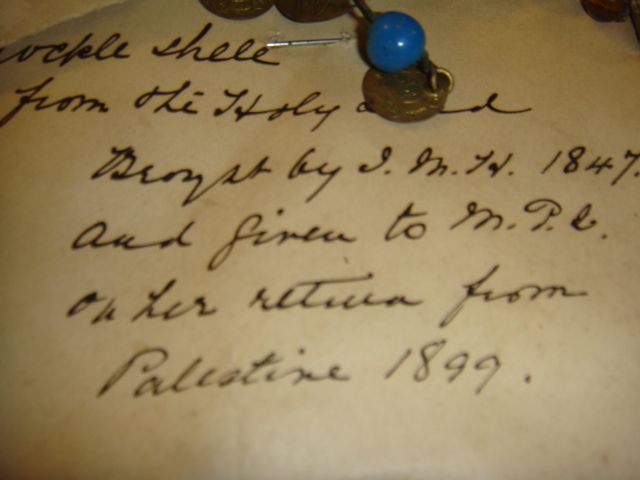 cockle shell
from the Holy
Brought by I. M. H. 1847.
And given to M. P. C.
on her return from
Palestine 1899.